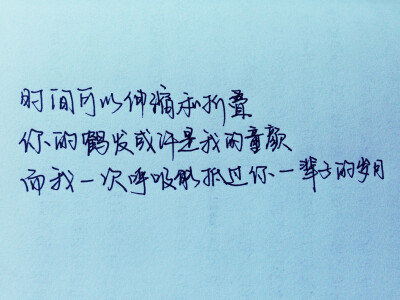 时间可以伸缩和折叠
你的鹤发或许是我的童颜
而我一次呼吸能抵过你一辈子的岁月